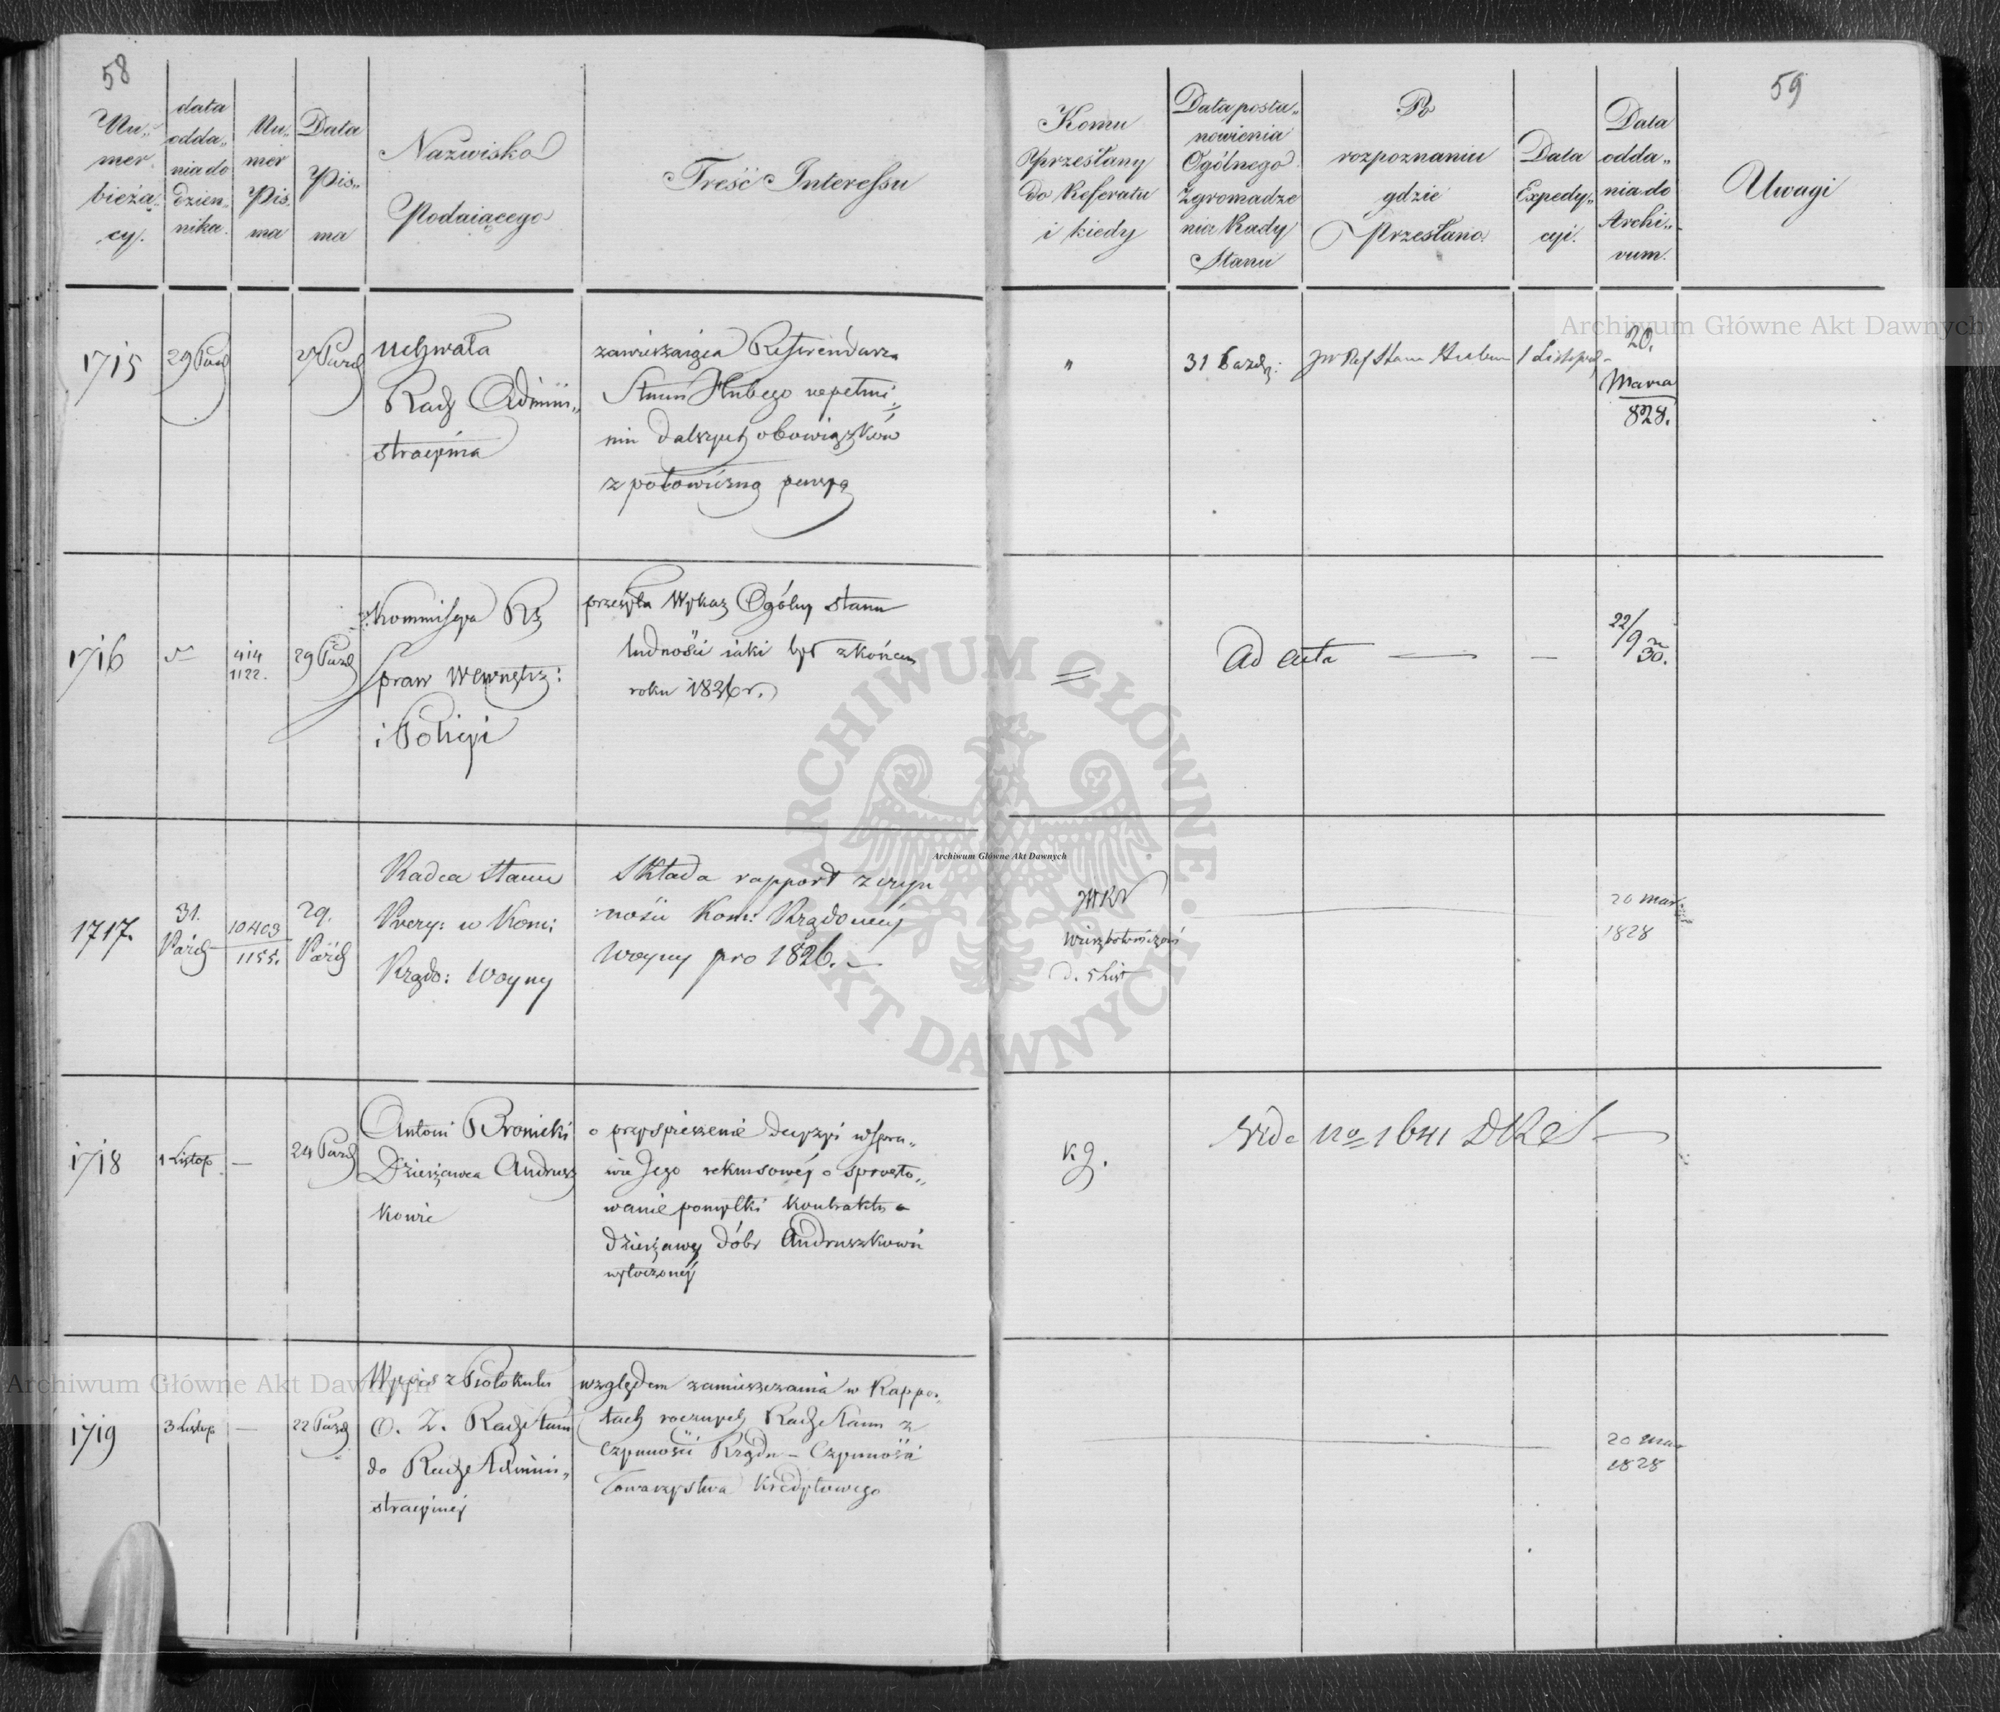 58
Nu„
mer
bieżą„
cy.
data
odda„
nia do
dzien„
nika.
Nu„
mer
Pis„
ma
Data
Pis„
ma
Nazwisko
Podaiącego
Treść Interessu
Komu
przesłany
do Referatu
i kiedy
Data posta„
nowienia
Ogólnego
Zgromadze
nia Rady
Stanu
Po
rozpoznaniu
gdzie
Przesłano.
Data
Expedy„
cyi.
Data
odda„
nia do
Archi„
vum.
59
Uwagi
1715
29 Paźd
27 Paźd
Uchwała
Rady Admini„
stracyina
zawieszaiąca Referendarza
Stanu Hubego w pełnie„
niu dalszych obowiązków
z połowiczną pensyą
"
31 Paźdz:
JW Ref Stanu
1 Listopad
20.
Marca
828.
1716
414
1122.
29 Paźd
Kommissya Rz
spraw Wewnętrz:
i Policyi
przesyła Wykaz Ogólny stanu
ludności iaki był z końcem
roku 1826 r.
Ad acta — —
22/9
30.
1717.
31.
Paźdz
10403
1155.
29.
Paźdz
Radca Stanu
Prezy: w Kom:
Rządo: Woyny
Składa rapport z czyn
ności Kom: Rządowey
Woyny pro 1826. —
JWRS
Wierzbołowiczowi
d. 5 List
20 Mar
1828
1718
1 Listop.
—
24 Paźd
Antoni Bronicki
Dzierżawca Andrusz
kowic
o przyspieszenie decyzyi w spra„
wie Jego rekursowéj o sprosto„
wanie pomyłki kontraktu
dzierżawy dóbr Andruszkowic
wytoczonéj
Kg.
Vide No 1641 DReS —
1719
3 Listop
—
22 Paźd
Wypis z Protokułu
O. Z. Rady Stanu
do Rady Admini„
stracyinéj
względem zamieszczania w Rappor„
tach rocznych Rady Stanu z
Czynności Rządu — Czynności
Towarzystwa Kredytowego
20 Mar
1828
Archiwum Główne Akt Dawnych
ARCHIWUM GŁÓWNE AKT DAWNYCH
Archiwum Główne Akt Dawnych
Archiwum Główne Akt Dawnych